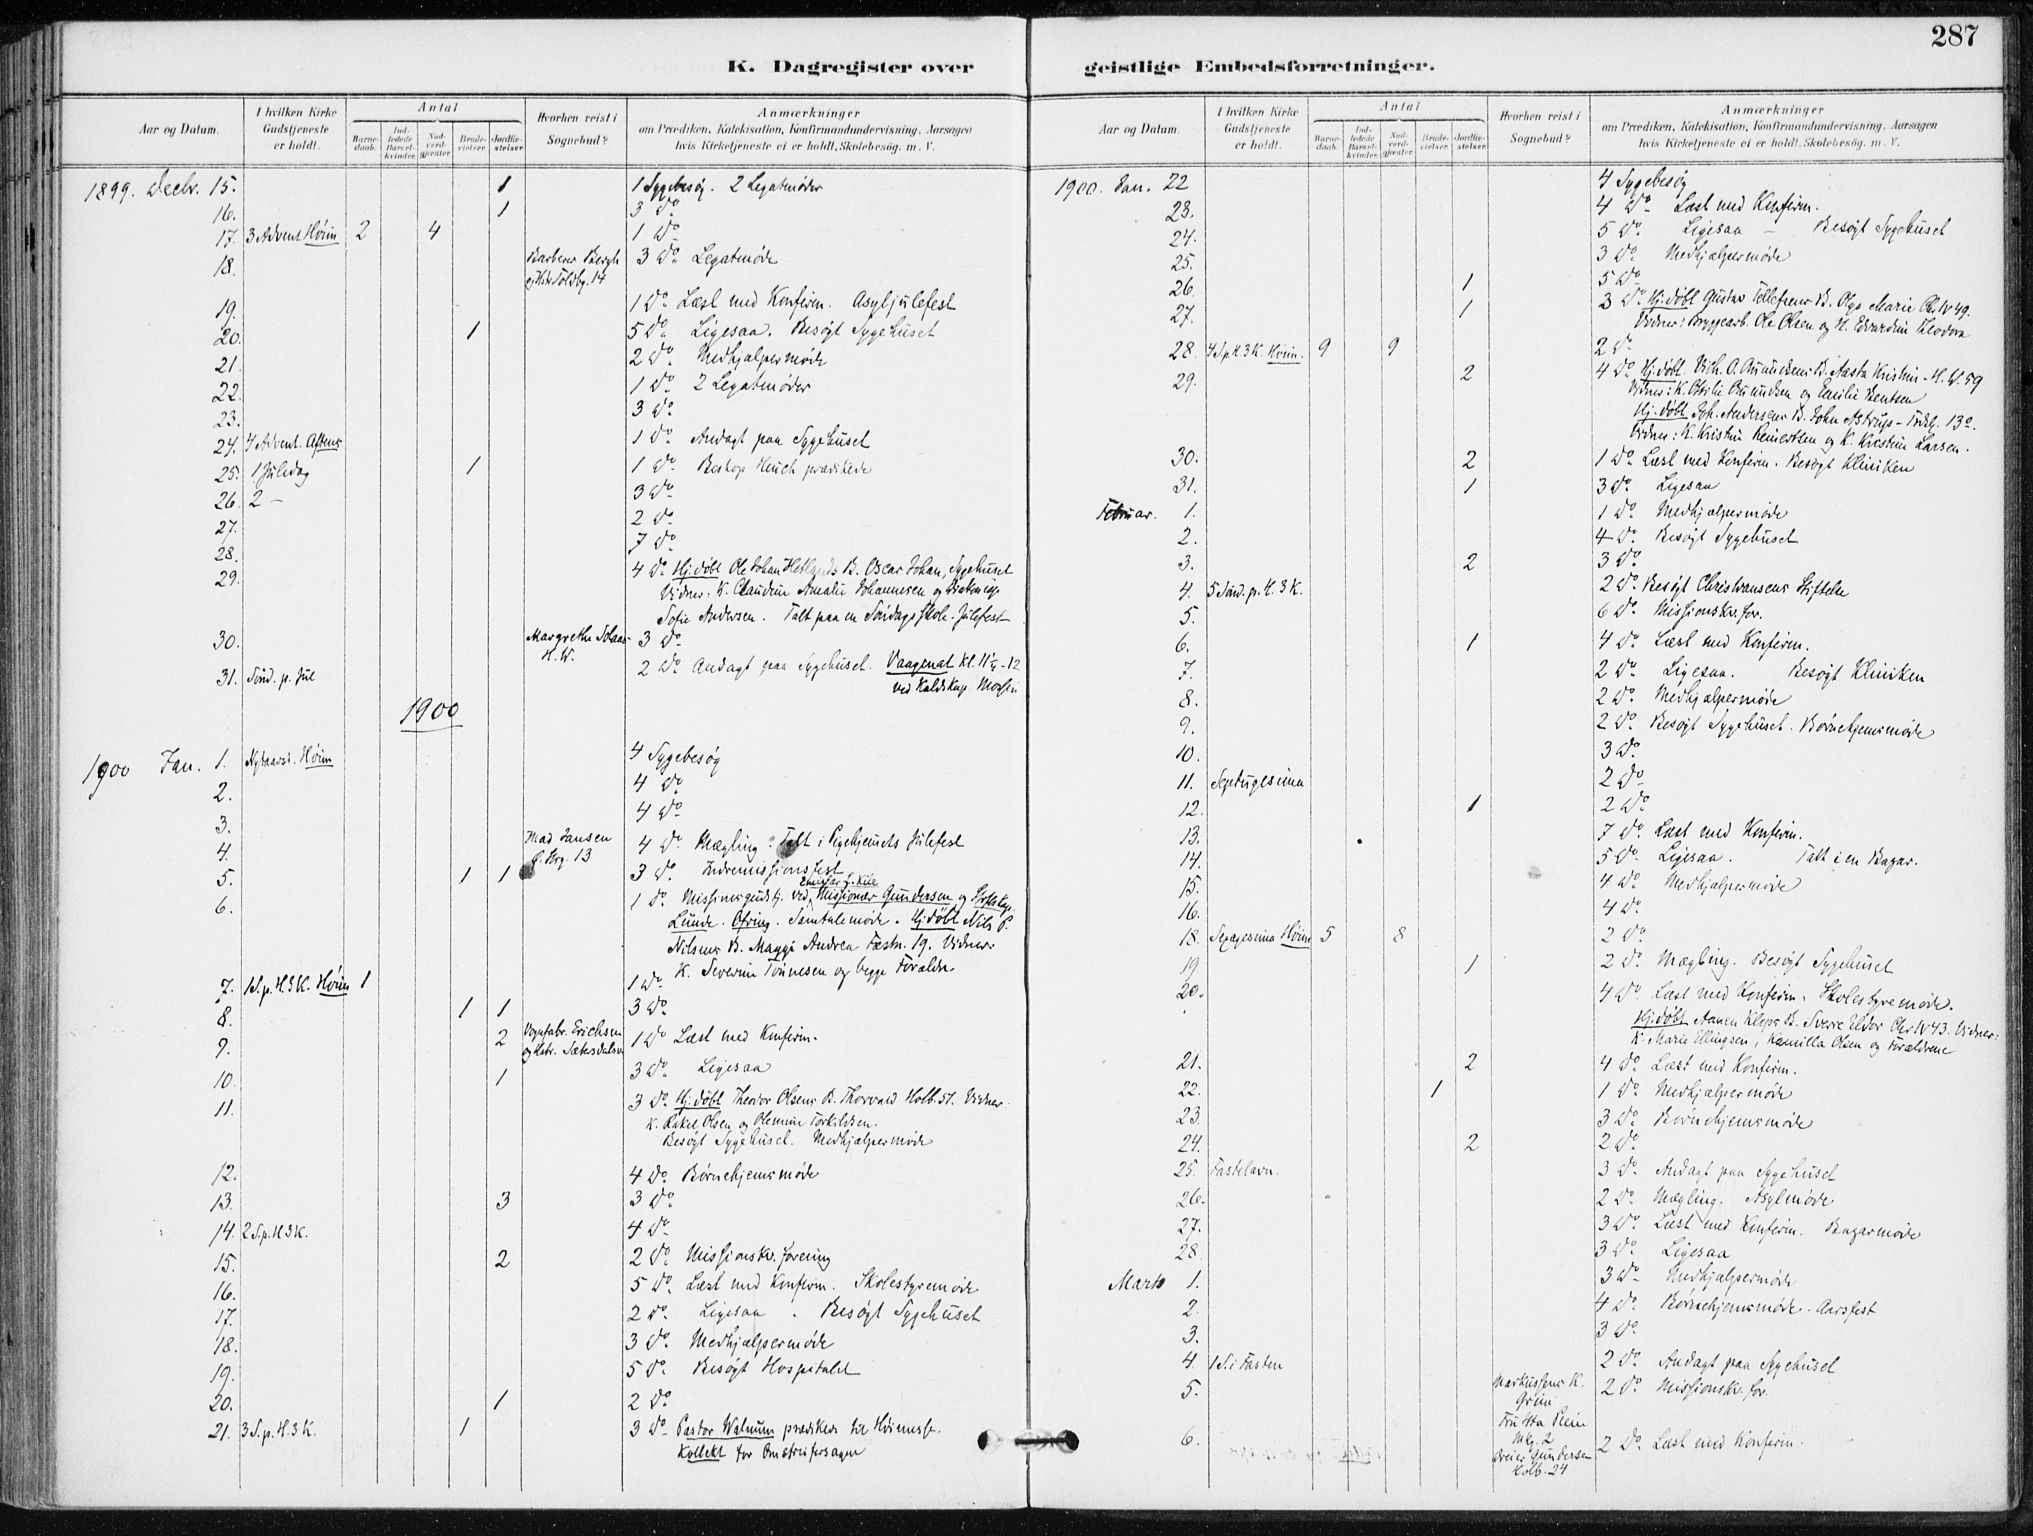 287
K. Dagregister over geistlige Embedsforretninger.
Aar og Datum.
I hvilken Kirke Gudstjeneste er holdt.
Antal
Barne-daab.
Ind-ledede Barsel-kvinder.
Nad-verd-gjæster
Brude-vielser.
Jordfæ-stelser
Hvorhen reist i Sognebud?
Anmærkninger
om Prædiken, Katekisation, Konfirmandundervisning, Aarsagen hvis Kirketjeneste ei er holdt, Skolebesøg. m. V.
1899. Decbr. 15. 1 1 Sygebesøg. 2 Legatmøder
16. 1 3 Do
17. 3 Advent Høim 2 4 1 Do
18. Barberer Bergh 3 Do Legatmøde
Toldbg. 14
19. 1 Do Læst med Konfirm. Asyljulefest
20. 1 5 Do Ligesaa. Besøgt Sygehuset
21. 2 Do Medhjælpermøde
22. 1 Do 2 Legatmøder
23. 3 Do
24. 4 Advent. Aftens 1 Do Andagt paa Sygehuset
25. 1 Juledag 1 1 Do Biskop Heuch prædikede
26. 2 – 3 Do
27. 2 Do
28. 7 Do
29. 4 Do Hj. døbt Ole Johan Hetlands B. Oscar Johan, Sygehuset
Vidner: K. Claudine Amalie Johannesen og
Sofie Andersen. Talt paa en Søndagsskole-Julefest
30. Margrethe 3 Do
H. W.
31. Sønd. p. Jul 2 Do Andagt paa Sygehuset. Vaagenat Kl. 11½-12
ved Kaldskap.
1900
1900 Jan. 1. Nytaarsd. Høim 4 Sygebesøg
2. 4 Do
3. 4 Do
4. Mad Jansen 4 Do Mægling. Talt i Pigehjemets Julefest
13
5. 1 1 3 Do Indremissionsfest
6. 1 Do Missionsgudstj. ved Missionær Gundersen og
Lunde. Ofring. Samtalemøde. Hj. døbt Nils P.
Nilsens B. Maggi Andrea Fæstn. 19. Vidner:
K. Severine Tønnesen og begge Forældre
7. 1 S. p. H 3 K. Høim 1 1 Do
8. 1 1 3 Do
9. 2 Erichsen 1 Do Læst med Konfirm.
10. 1 3 Do Ligesaa
11. 3 Do Hj. døbt Theodor Olsens B. Thorvald Holb. 51. Vidner:
K. Rakel Olsen og Olemine Torkildsen.
Besøgt Sygehuset. Medhjælpermøde
12. 4 Do Børnehjemsmøde
13. 3 3 Do
14. 2 S. p. H 3 K. 4 Do
15. 2 2 Do Missionskv. forening
16. 5 Do Læst med Konfirm. Skolestyremøde
17. 2 Do Ligesaa. Besøgt Sygehuset
18. 3 Do Medhjælpermøde
19. 5 Do Besøgt Hospitalet
20. 1 2 Do
21. 3 S. p. H. 3 K. 1 3 Do Pastor Walnum prædikede til Høimesse.
Kollekt for Omstreifersagen
Aar og Datum.
I hvilken Kirke Gudstjeneste er holdt.
Antal
Barne-daab.
Ind-ledede Barsel-kvinder.
Nad-verd-gjæster
Brude-vielser.
Jordfæ-stelser.
Hvorhen reist i Sognebud?
Anmærkninger
om Prædiken, Katekisation, Konfirmandundervisning, Aarsagen hvis Kirketjeneste ei er holdt, Skolebesøg. m. V.
1900. Jan. 22 4 Sygebesøg
23. 4 Do Læst med Konfirm.
24. 5 Do Ligesaa – Besøgt Sygehuset
25. 3 Do Medhjælpermøde
26. 1 5 Do
27. 1 3 Do Hj. døbt Gustav Tellefsens B. Olga Marie Chr. IV 49.
Vidner: Bryggearb. Ole Olsen og H. Edvardine Theodora
28. 4 S. p. H 3 K. Høim. 9 9 2 Do
29. 2 4 Do Hj. døbt Vilh. O. Omundsens B. Aasta Kristine – H. W. 59
Vidner: K. Otilie Omundsen og Emilie Bentsen
Hj. døbt Joh. Andersens B. John Astrup – 13.
Vidner: K. Kristine Reinertsen og K. Kirstine Larsen.
30. 2 1 Do Læst med Konfirm. Besøgt Kliniken
31. 1 3 Do Ligesaa
Februar. 1. 1 Do Medhjælpermøde
2. 4 Do Besøgt Sygehuset
3. 2 3 Do
4. 5 Sønd. p. H. 3 K. 2 Do Besøgt Christiansens Stiftelse
5. 6 Do Missionskv. for.
6. 1 4 Do Læst med Konfirm.
7. 2 Do Ligesaa. Besøgt Kliniken
8. 2 Do Medhjælpermøde
9. 2 Do Besøgt Sygehuset. Børnehjemsmøde
10. 3 Do
11. Septuagesima 2 Do
12. 1 2 Do
13. 7 Do Læst med Konfirm.
14. 5 Do Ligesaa. Talt i en Bazar.
15. 4 Do Medhjælpermøde
16. 4 Do
18. Sexagesima Høim 5 8 2 Do
19. 1 2 Do Mægling. Besøgt Sygehuset
20. 4 Do Læst med Konfirm. Skolestyremøde.
Hj. døbt Aanen Kleps B. Sverre Eldor Chr. IV 43. Vidner:
K. Marie Ellingsen, Kamilla Olsen og Forældrene
21. 2 4 Do Læst med Konfirm.
22. 1 1 Do Medhjælpermøde
23. 3 Do Børnehjemsmøde
24. 2 2 Do
25. Fastelavn. 3 Do Andagt paa Sygehuset
26. 2 Do Mægling. Asylmøde
27. 3 Do Læst med Konfirm. Bazarmøde
28. 3 Do Ligesaa
Marts 1. 3 Do Medhjælpermøde
2. 4 Do Børnehjemsmøde. Aarsfest
3. 3 Do
4. 1 S. i Fasten 2 Do Andagt paa Sygehuset
5. Markussens K. 2 Do Missionskv. for.
Fru
Mkg. 2
6. Gundersen 2 Do Læst med Konfirm.
Holb. 24